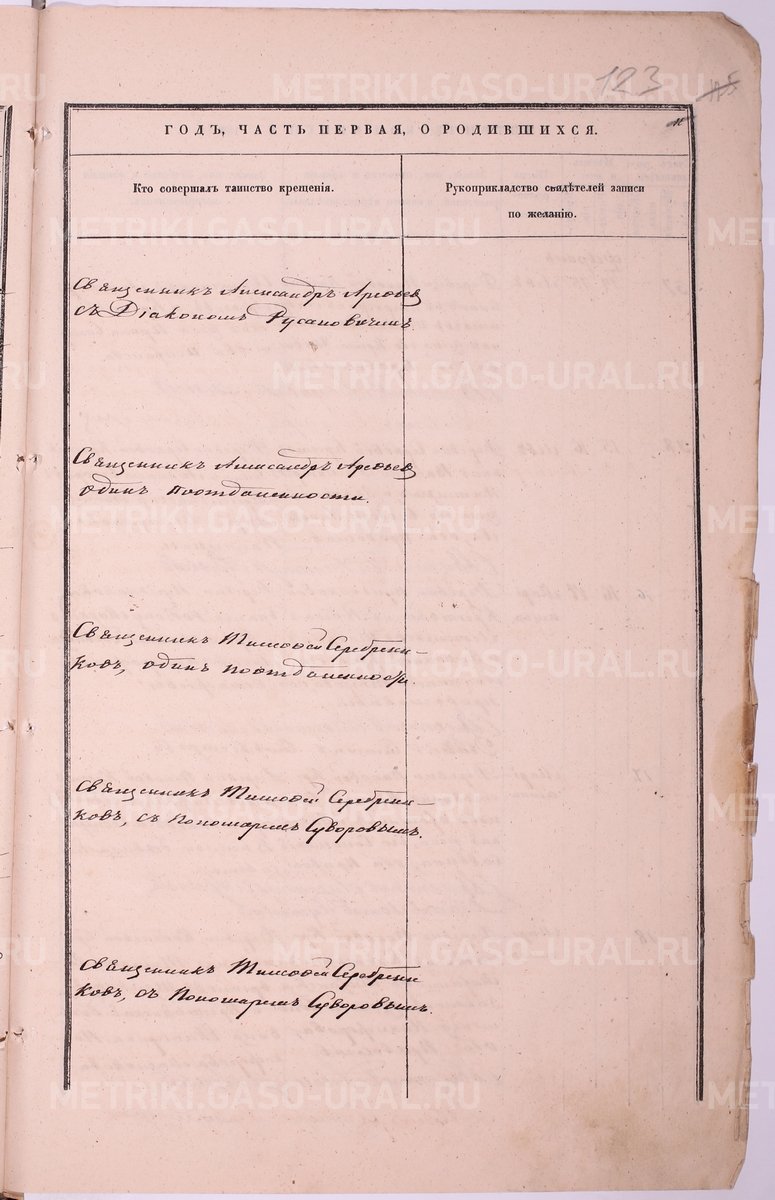 123
ГОДЪ, ЧАСТЬ ПЕРВАЯ, О РОДИВШИХСЯ.
Кто совершалъ таинство крещенія.
Рукоприкладство свидѣтелей записи
по желанію.
Священникъ Александръ Арефьев
съ Діакономъ Русановичимъ.
Священникъ Александръ Арефьев
одинъ поотдаленности.
Священникъ Тимофей Серебрени-
ковъ, одинъ поотдаленности.
Священникъ Тимофей Серебрени-
ковъ, съ Пономаремъ Суворовымъ.
Священникъ Тимофей Серебрени
ковъ, съ Пономаремъ Суворовымъ.
METRIKI.GASO-URAL.RU